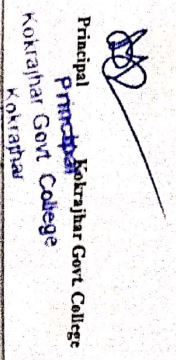 Principal
Kokrajhar Govt. College
Principal
Kokrajhar Govt. College
Kokrajhar